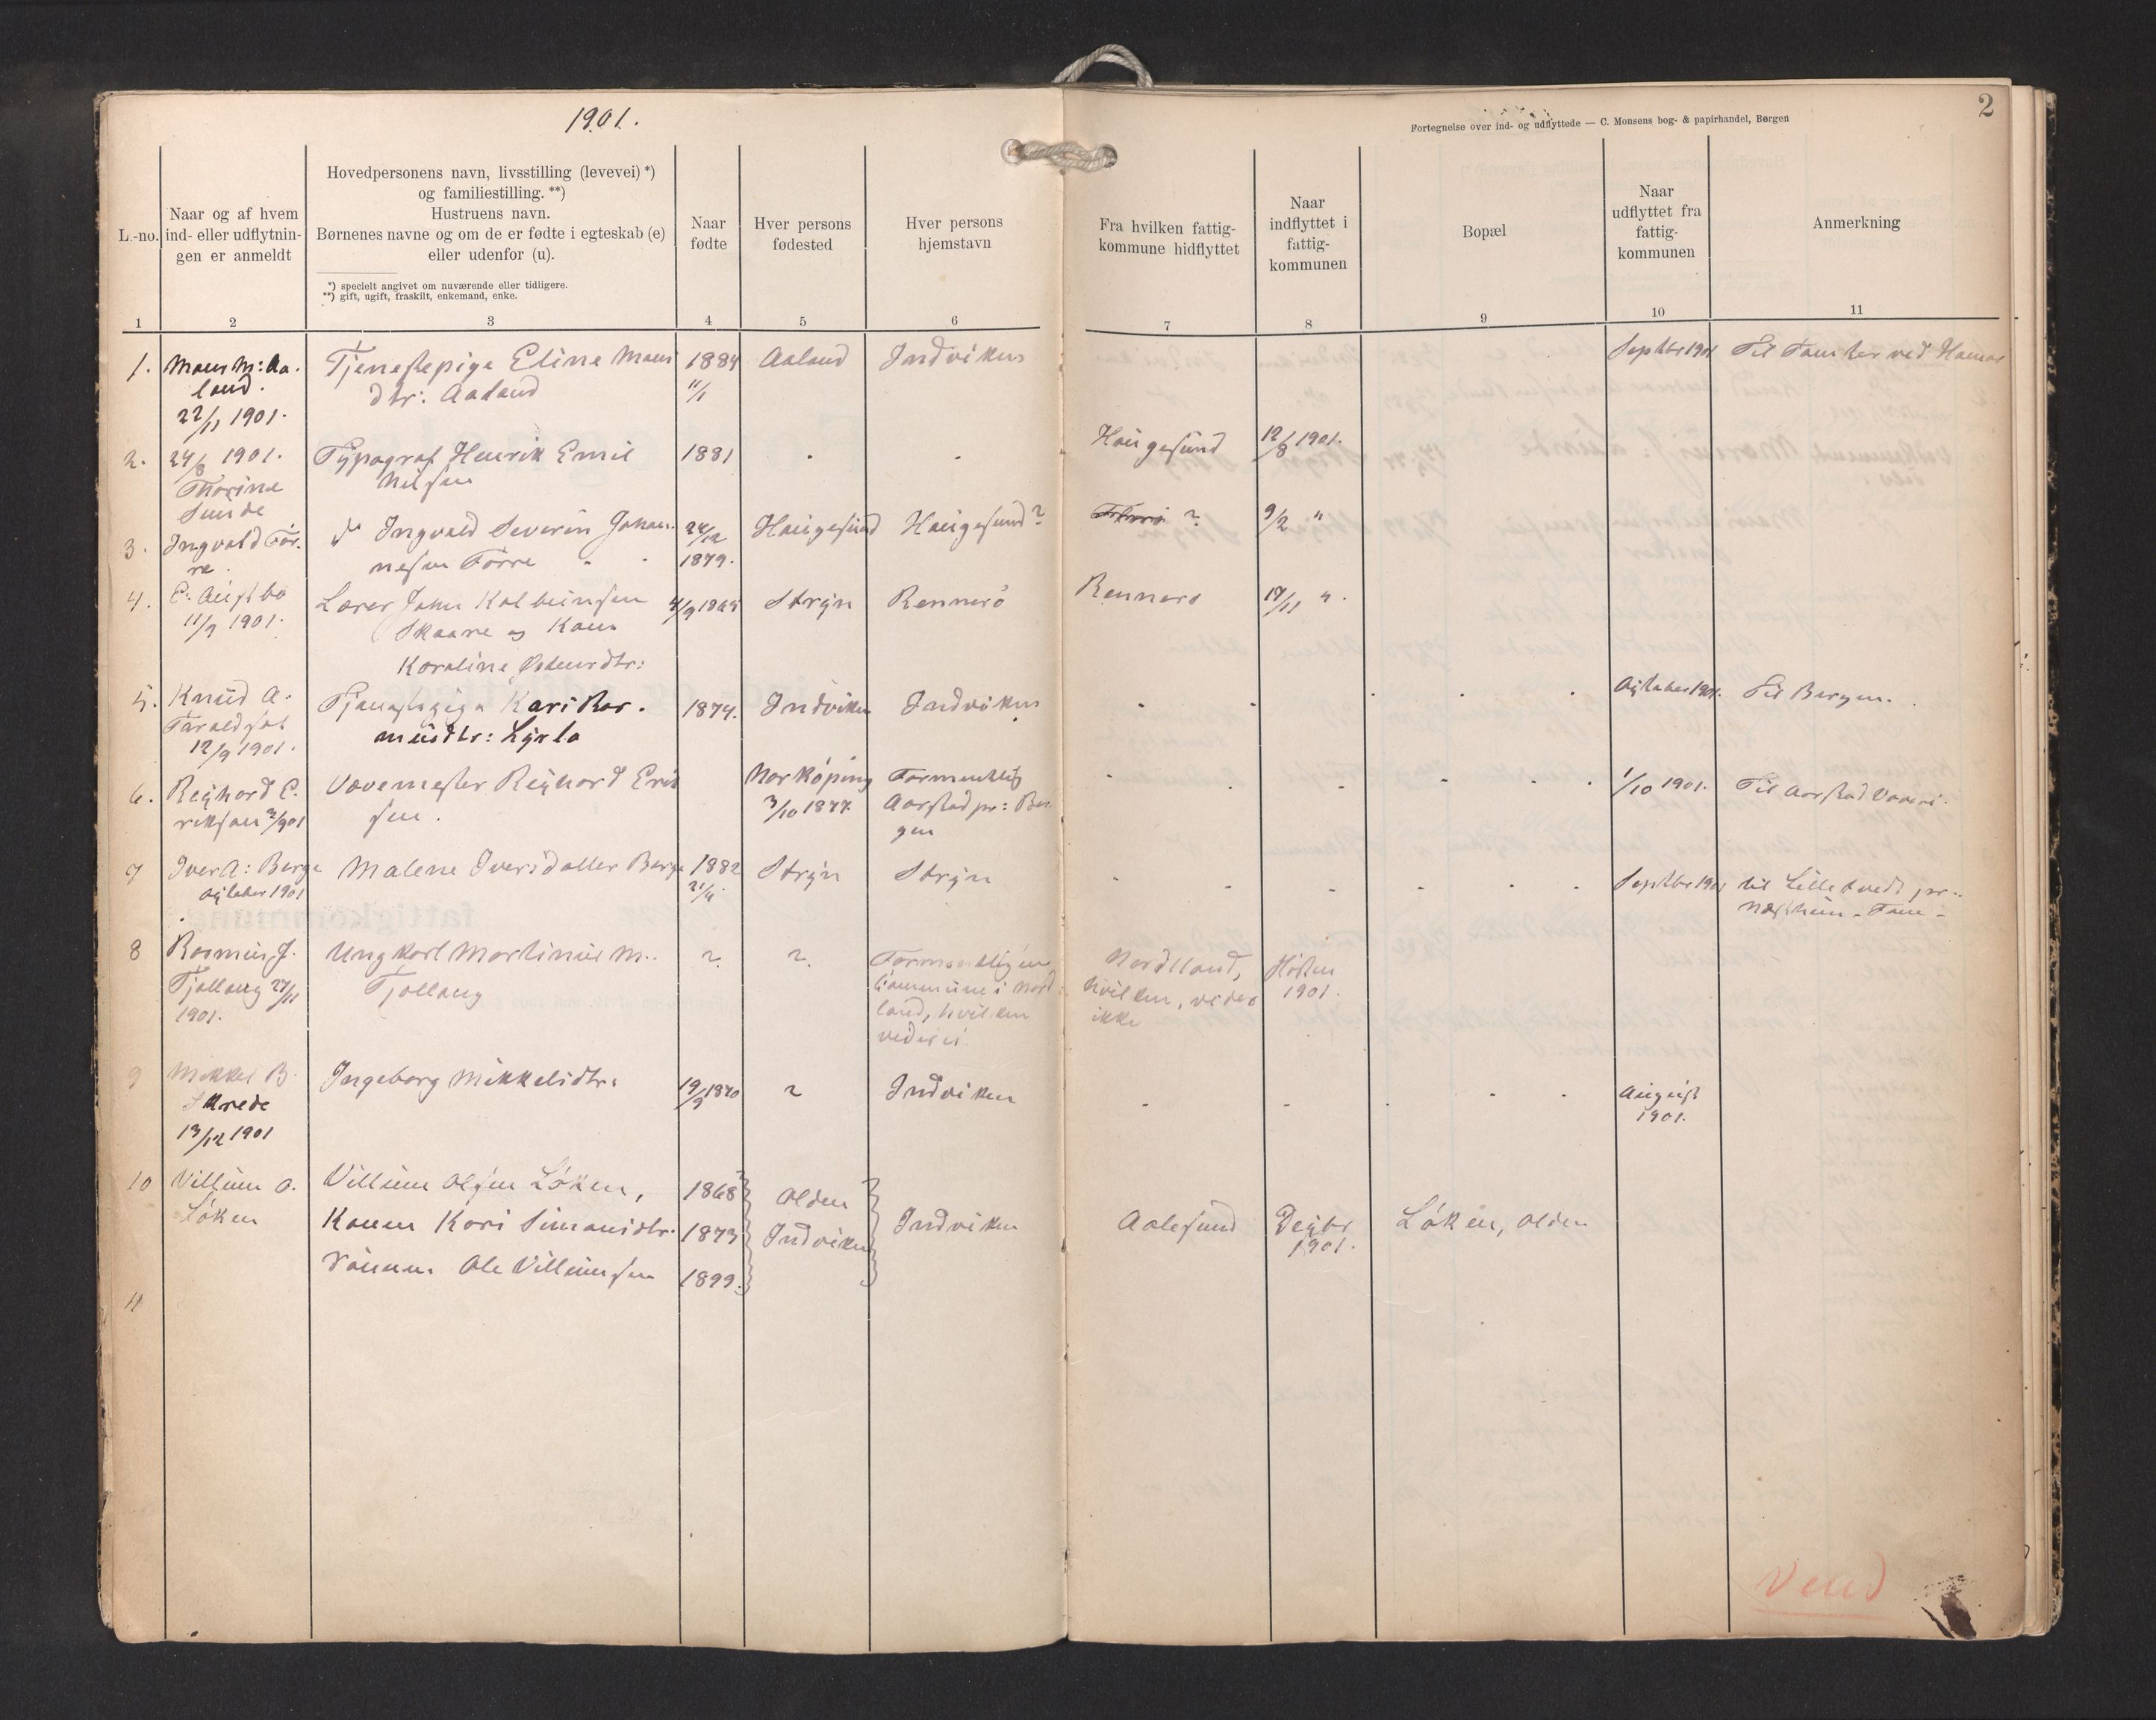 1901.
2
Fortegnelse over ind- og udflyttede — C. Monsens bog- & papirhandel, Bergen
L.-no.
Naar og af hvem
ind- eller udflytnin-
gen er anmeldt
Hovedpersonens navn, livsstilling (levevei) *)
og familiestilling. **)
Hustruens navn.
Børnenes navne og om de er fødte i egteskab (e)
eller udenfor (u).
*) specielt angivet om nuværende eller tidligere.
**) gift, ugift, fraskilt, enkemand, enke.
Naar
fødte
Hver persons
fødested
Hver persons
hjemstavn
Fra hvilken fattig-
kommune hidflyttet
Naar
indflyttet i
fattig-
kommunen
Bopæl
Naar
udflyttet fra
fattig-
kommunen
Anmerkning
1 2 3 4 5 6 7 8 9 10 11
1. Mons M: Aa-
land.
22/11 1901.
Tjenestepige Eline Mons
dtr: Aaland
1884
11/1
Aaland
Indviken
Septbr 1901
Til ved Hamar
2. 24/8 1901.
Thorine
Sunde
Typograf Henrik Emil
Nilsen
1881
Haugesund
12/8 1901.
3. Ingvald Tør-
re.
do Ingvald Severin Johan-
nesen Tørre
24/12
1879.
Haugesund
Haugesund?
?
9/2 "
4. E. Austbø
11/9 1901.
Lærer John Kolbeinsen
Skaare og Kone
Karoline dtr:
4/9 1865
Stryn
Rennesø
Rennesø
17/11 "
5. Knud A.
12/9 1901.
Tjenestepige Kari Ras-
musdtr:
1874.
Indviken
Indviken
Oktober 1901.
Til Bergen.
6. Reinhard E-
riksen 3/9 01
Vævemester Reinhard Erik
sen.
Norköping
3/10 1877.
Formentlig
Aarstad pr: Ber-
gen
1/10 1901.
Til Aarstad Væveri.
7 Iver A: Berge
Oktober 1901
Malene Iversdatter Berge
1882
21/4
Stryn
Stryn
Septbr 1901
til pr.
8 Rasmus J.
Tjellaug 27/11
1901.
Ungkarl Martinus M..
Tjellaug
?
?
Formentlig en
Commune i Nord-
land, hvilken
vedes ei
Nordland,
hvilken, vedes
ikke
Høsten
1901.
9 Mikkel B.
Skrede
13/12 1901
Ingeborg Mikkelsdtr:
19/9 1870
?
Indviken
August
1901.
10 Villum O.
Løken
Villum Olsen Løken,
1868
Olden
Konen Kari Simonsdtr.
1873
Indviken
Indviken
Aalesund
Decbr
1901.
Løken, Olden
Sønnen Ole Villumsen
1899.
11
Vend